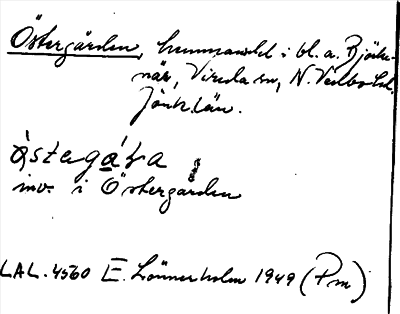 Östergården, hemmansdel i bl. a. Björk-
när, Virula sn, N. Vedbo hd.
Jönk. län.
östegåra
inv. i Östergården
LAL. 4560 E. Lönnerholm 1949 (Pm)